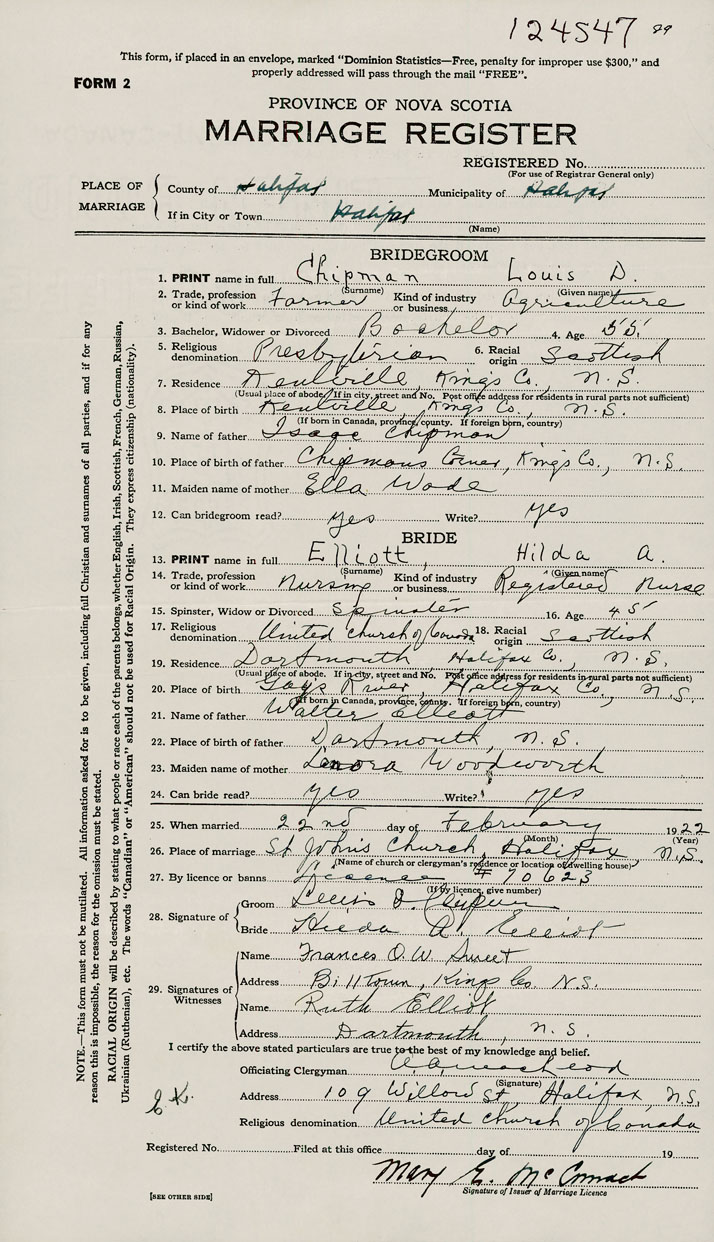 124547 99
This form, if placed in an envelope, marked "Dominion Statistics—Free, penalty for improper use $300," and
properly addressed will pass through the mail "FREE".
FORM 2
PROVINCE OF NOVA SCOTIA
MARRIAGE REGISTER
REGISTERED No.
(For use of Registrar General only)
PLACE OF MARRIAGE
County of Halifax Municipality of Halifax
If in City or Town Halifax
(Name)
BRIDEGROOM
1. PRINT name in full Chipman Louis D.
(Surname) (Given name)
2. Trade, profession or kind of work Farmer Kind of industry or business Agriculture
3. Bachelor, Widower or Divorced Bachelor 4. Age 55
5. Religious denomination Presbyterian 6. Racial origin Scottish
7. Residence Kentville, Kings Co., N.S.
(Usual place of abode. If in city, street and No. Post office address for residents in rural parts not sufficient)
8. Place of birth Kentville, Kings Co., N.S.
(If born in Canada, province, county. If foreign born, country)
9. Name of father Isaac Chipman
10. Place of birth of father Chipmans Corner, Kings Co., N.S.
11. Maiden name of mother Ella Wade
12. Can bridegroom read? yes Write? yes
BRIDE
13. PRINT name in full Elliott, Hilda A.
(Surname) (Given name)
14. Trade, profession or kind of work Nursing Kind of industry or business Registered Nurse
15. Spinster, Widow or Divorced Spinster 16. Age 45
17. Religious denomination United Church of Canada 18. Racial origin Scottish
19. Residence Dartmouth, Halifax Co., N.S.
(Usual place of abode. If in city, street and No. Post office address for residents in rural parts not sufficient)
20. Place of birth Gays River, Halifax Co., N.S.
(If born in Canada, province, county. If foreign born, country)
21. Name of father Walter Elliott
22. Place of birth of father Dartmouth, N.S.
23. Maiden name of mother Lenora Woodworth
24. Can bride read? yes Write? yes
25. When married 22nd day of February 1922
(Month) (Year)
26. Place of marriage St Johns Church, Halifax, N.S.
(Name of church or clergyman's residence or location of dwelling house)
27. By licence or banns License # 70623
(If by licence, give number)
28. Signature of
Groom Louis D. Chipman
Bride Hilda A. Elliot
29. Signatures of Witnesses
Name Frances O. W. Sweet
Address Billtown, Kings Co. N.S.
Name Ruth Elliot
Address Dartmouth, N.S.
I certify the above stated particulars are true to the best of my knowledge and belief.
Officiating Clergyman
(Signature)
Address 109 Willow St, Halifax, N.S.
Religious denomination United Church of Canada
Registered No. Filed at this office day of 19
Mary E. McCormack
Signature of Issuer of Marriage Licence
[SEE OTHER SIDE]
NOTE.—This form must not be mutilated. All information asked for is to be given, including full Christian and surnames of all parties, and if for any
reason this is impossible, the reason for the omission must be stated.
RACIAL ORIGIN will be described by stating to what people or race each of the parents belongs, whether English, Irish, Scottish, French, German, Russian,
Ukrainian (Ruthenian), etc. The words "Canadian" or "American" should not be used for Racial Origin. They express citizenship (nationality).